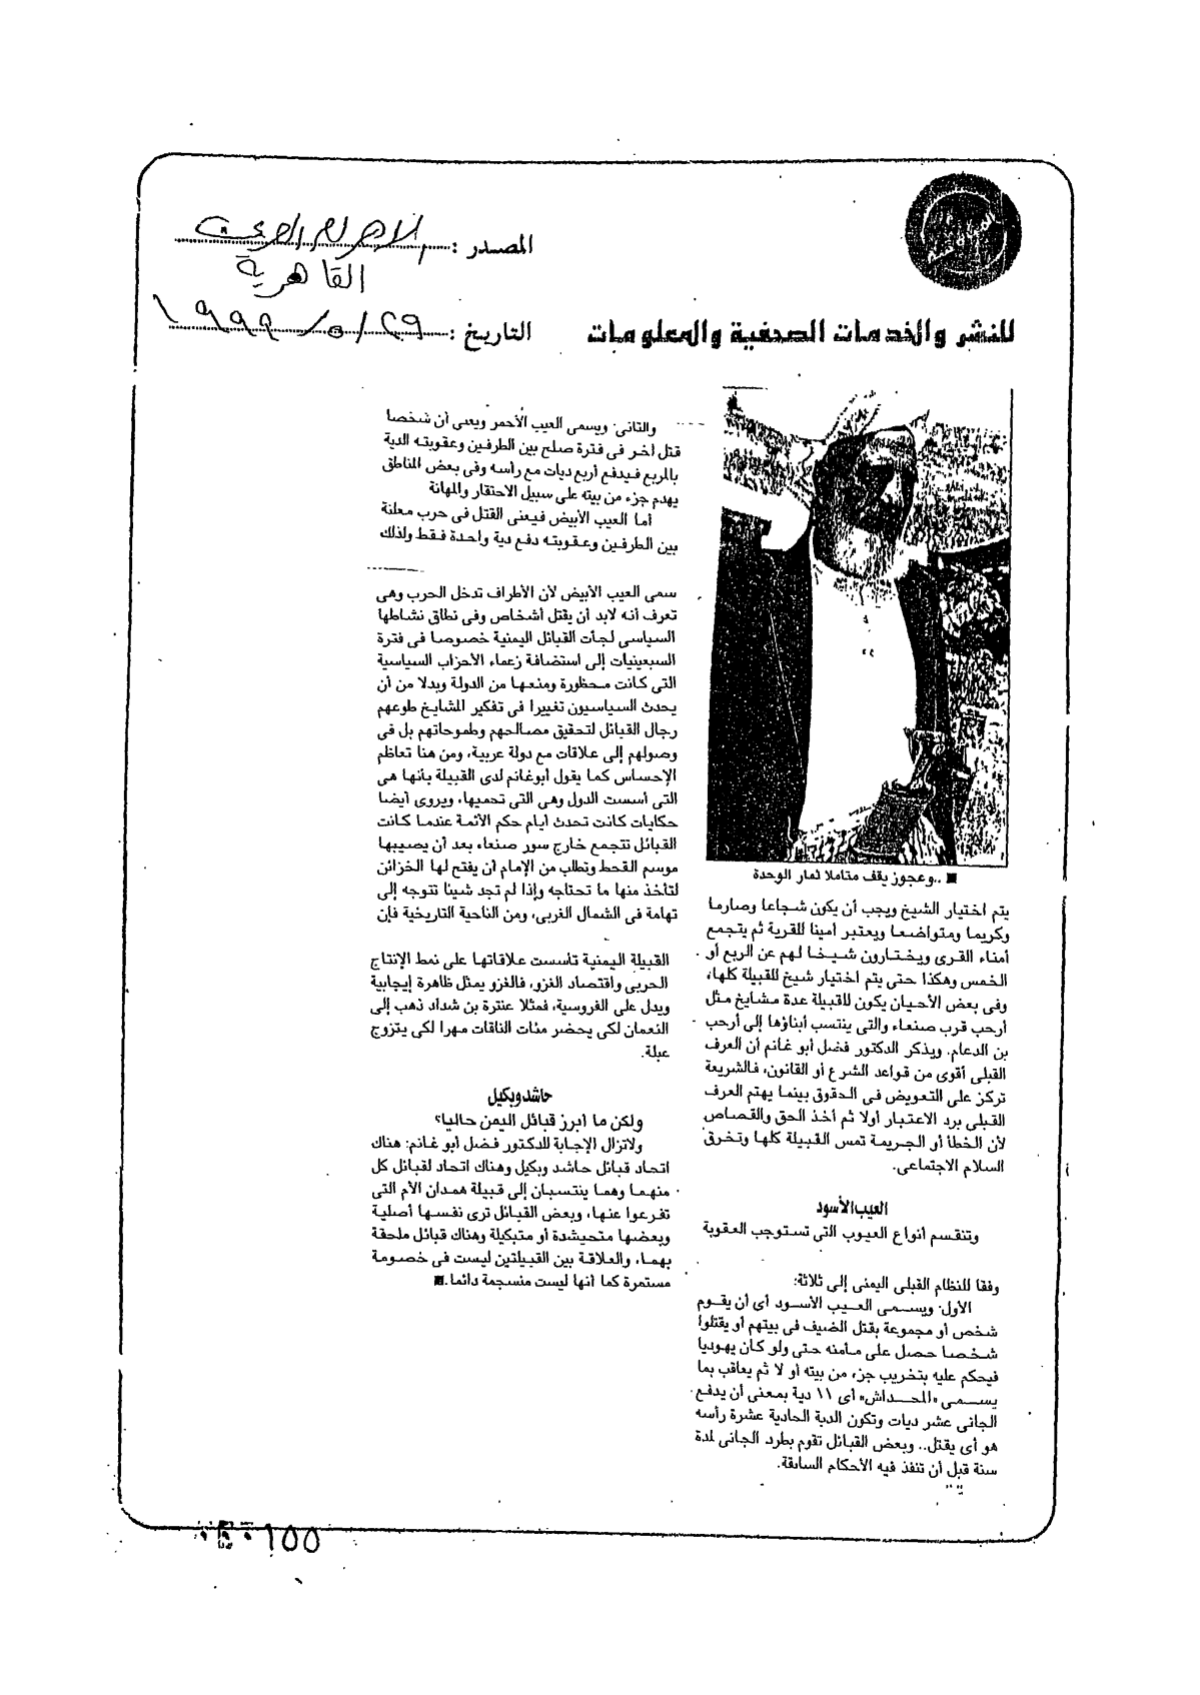 المصدر : الاهرام العربي
القاهرية
التاريخ : ٢٩ / ٥ / ١٩٩٩
للنشر والخدمات الصحفية والمعلومات
■ ..وعجوز يقف متاملا ثمار الوحدة
يتم اختيار الشيخ ويجب أن يكون شجاعا وصارما
وكريما ومتواضعا ويعتبر أمينا للقرية ثم يتجمع
أمناء القرى ويختارون شيخا لهم عن الربع أو
الخمس وهكذا حتى يتم اختيار شيخ للقبيلة كلها،
وفى بعض الأحيان يكون للقبيلة عدة مشايخ مثل
أرحب قرب صنعاء والتى ينتسب أبناؤها إلى أرحب
بن الدعام. ويذكر الدكتور فضل أبو غانم أن العرف
القبلى أقوى من قواعد الشرع أو القانون، فالشريعة
تركز على التعويض فى الحقوق بينما يهتم العرف
القبلى برد الاعتبار أولا ثم أخذ الحق والقصاص
لأن الخطأ أو الجريمة تمس القبيلة كلها وتخرق
السلام الاجتماعى.
العيب الأسود
وتنقسم أنواع العيوب التى تستوجب العقوبة
وفقا للنظام القبلى اليمنى إلى ثلاثة:
الأول: ويسمى العيب الأسود أى أن يقوم
شخص أو مجموعة بقتل الضيف فى بيتهم أو يقتلوا
شخصا حصل على مأمنه حتى ولو كان يهوديا
فيحكم عليه بتخريب جزء من بيته أو لا ثم يعاقب بما
يسمى «المحداش» أى ١١ دية بمعنى أن يدفع
الجانى عشر ديات وتكون الدية الحادية عشرة رأسه
هو أى يقتل.. وبعض القبائل تقوم بطرد الجانى لمدة
سنة قبل أن تنفذ فيه الأحكام السابقة.
والثانى: ويسمى العيب الأحمر ويعنى أن شخصا
قتل آخر فى فترة صلح بين الطرفين وعقوبته الدية
بالمربع فيدفع أربع ديات مع رأسه وفى بعض المناطق
يهدم جزء من بيته على سبيل الاحتقار والمهانة
أما العيب الأبيض فيعنى القتل فى حرب معلنة
بين الطرفين وعقوبته دفع دية واحدة فقط ولذلك
سمى العيب الأبيض لأن الأطراف تدخل الحرب وهى
تعرف أنه لابد أن يقتل أشخاص وفى نطاق نشاطها
السياسى لجأت القبائل اليمنية خصوصا فى فترة
السبعينيات إلى استضافة زعماء الأحزاب السياسية
التى كانت محظورة ومنعها من الدولة وبدلا من أن
يحدث السياسيون تغييرا فى تفكير المشايخ طوعهم
رجال القبائل لتحقيق مصالحهم وطموحاتهم بل فى
وصولهم إلى علاقات مع دولة عربية، ومن هنا تعاظم
الإحساس كما يقول أبوغانم لدى القبيلة بأنها هى
التى أسست الدول وهى التى تحميها، ويروى أيضا
حكايات كانت تحدث أيام حكم الأئمة عندما كانت
القبائل تتجمع خارج سور صنعاء بعد أن يصيبها
موسم القحط وتطلب من الإمام أن يفتح لها الخزائن
لتأخذ منها ما تحتاجه وإذا لم تجد شيئا تتوجه إلى
تهامة فى الشمال الغربى، ومن الناحية التاريخية فإن
القبيلة اليمنية تأسست علاقاتها على نمط الإنتاج
الحربى واقتصاد الغزو، فالغزو يمثل ظاهرة إيجابية
ويدل على الفروسية، فمثلا عنترة بن شداد ذهب إلى
النعمان لكى يحضر مئات الناقات مهرا لكى يتزوج
عبلة.
حاشد وبكيل
ولكن ما أبرز قبائل اليمن حاليا؟
ولاتزال الإجابة للدكتور فضل أبو غانم: هناك
اتحاد قبائل حاشد وبكيل وهناك اتحاد لقبائل كل
منهما وهما ينتسبان إلى قبيلة همدان الأم التى
تفرعوا عنها، وبعض القبائل ترى نفسها أصلية
وبعضها متحيشدة أو متبكيلة وهناك قبائل ملحقة
بهما، والعلاقة بين القبيلتين ليست فى خصومة
مستمرة كما أنها ليست منسجمة دائما. ■
١٥٥